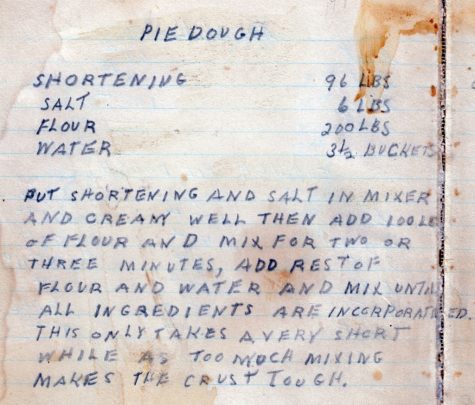 PIE DOUGH
SHORTENING 96 LBS
SALT 6 LBS
FLOUR 200 LBS
WATER 3½ BUCKETS
PUT SHORTENING AND SALT IN MIXER
AND CREAM WELL THEN ADD 100 LB
OF FLOUR AND MIX FOR TWO OR
THREE MINUTES, ADD REST OF
FLOUR AND WATER AND MIX UNTIL
ALL INGREDIENTS ARE INCORPORATED.
THIS ONLY TAKES A VERY SHORT
WHILE AS TOO MUCH MIXING
MAKES THE CRUST TOUGH.